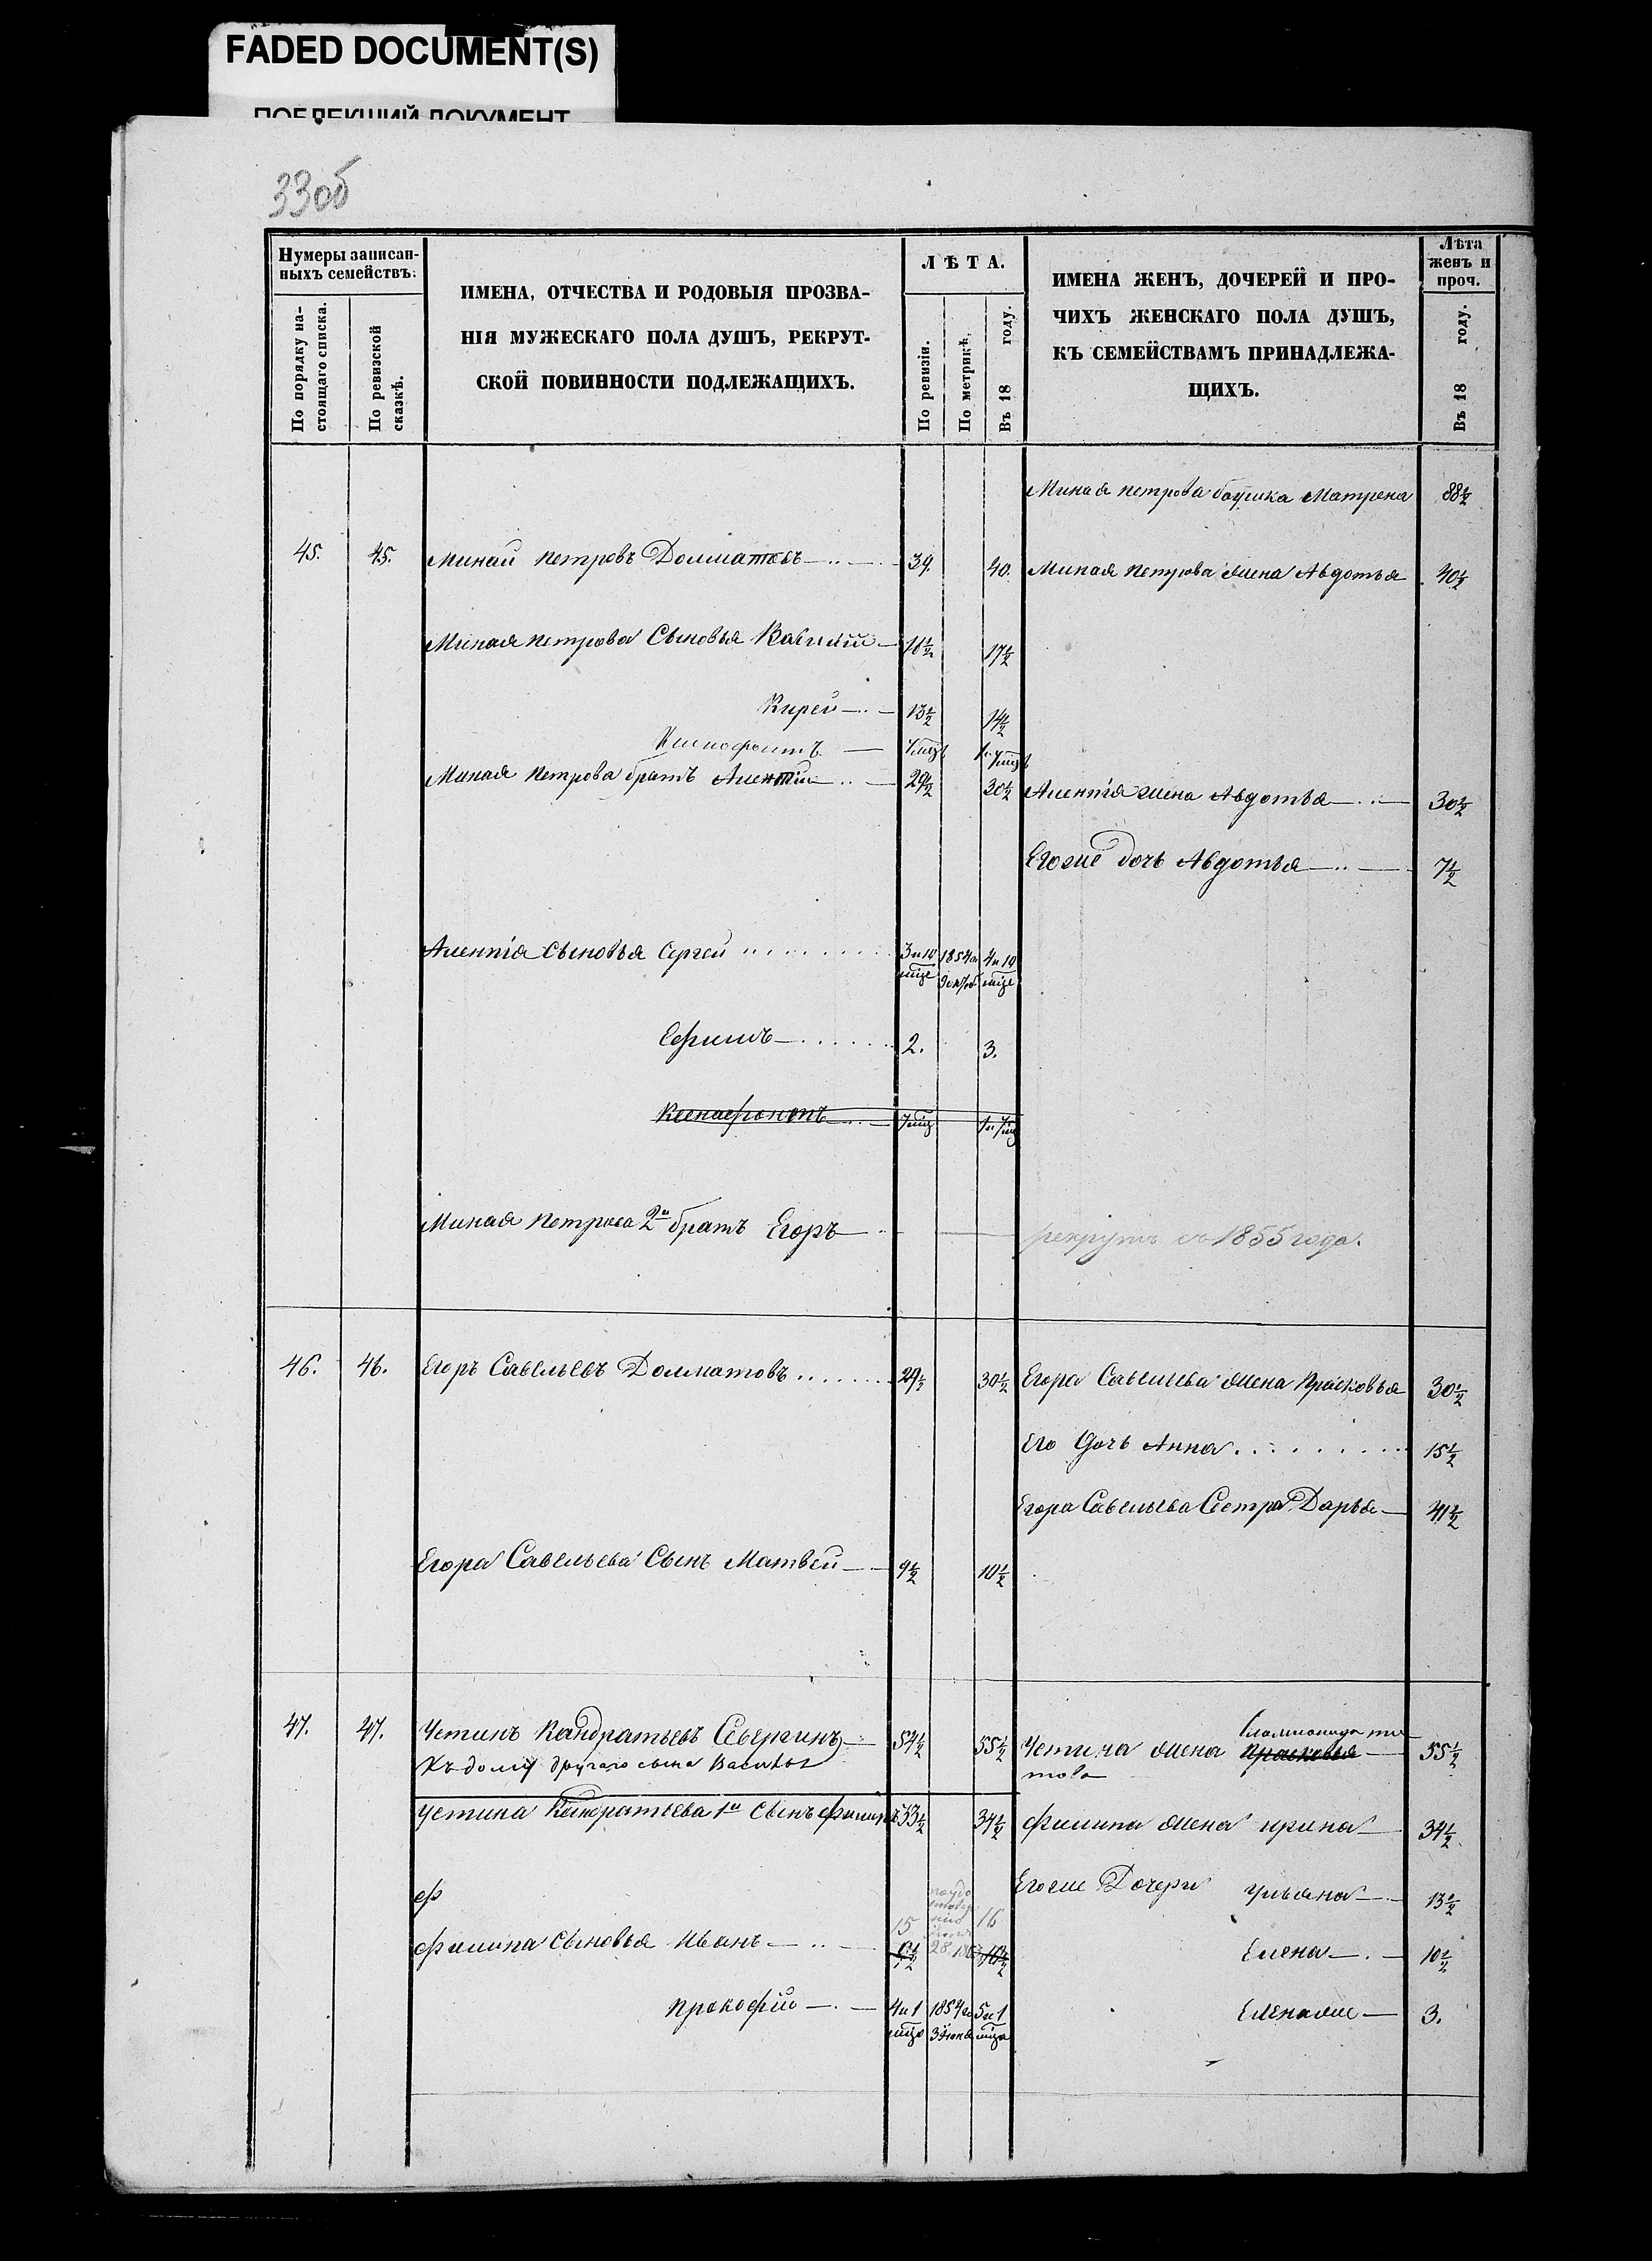 FADED DOCUMENT(S)
ПОБЛЕКШИЙ ДОКУМЕНТ
33об
Нумеры записан-
ныхъ семействъ:
По порядку на-
стоящаго списка.
По ревизской
сказкѣ.
ИМЕНА, ОТЧЕСТВА И РОДОВЫЯ ПРОЗВА-
НІЯ МУЖЕСКАГО ПОЛА ДУШЪ, РЕКРУТ-
СКОЙ ПОВИННОСТИ ПОДЛЕЖАЩИХЪ.
ЛѢТА.
По ревизіи.
По метрикѣ.
Въ 18 году.
ИМЕНА ЖЕНЪ, ДОЧЕРЕЙ И ПРО-
ЧИХЪ ЖЕНСКАГО ПОЛА ДУШЪ,
КЪ СЕМЕЙСТВАМЪ ПРИНАДЛЕЖА-
ЩИХЪ.
Лѣта
женъ и
проч.
Въ 18 году.
Миная петрова Матрена 88½
45. 45. Минай петровъ Долматовъ 39. 40. Миная петрова жена Авдотья 40½
Миная петрова Сыновья 16½ 17½
Кирей 13½ 14½
7 мцъ 1 и 7 мцъ
Миная петрова братъ 29½ 30½ жена Авдотья 30½
Егоже дочь Авдотья 7½
сыновья Сергей 3 и 10 мцъ 1854 4 и 10 мцъ
Ефимъ 2. 3.
Ксенофонтъ 7 мцъ 1 и 7 мц
Миная петрова 2й братъ Егоръ рекрутъ съ 1855 года.
46. 46. Егоръ Савельевъ Долматовъ 29½ 30½ Егора Савельева жена Прасковья 30½
Его Дочь Анна 15½
Егора Савельева Сестра Дарья 41½
Егора Савельева Сынъ Матвей 9½ 10½
47. 47. Устинъ Кандратьевъ Севергинъ 54½ 55½ Устина жена Прасковья 55½
Къ дому другаго сына
Устина Кандратьева 1й Сынъ филипъ 33½ 34½ филипа жена ирина 34½
ф
Егоже Дочери ульяна 13½
филипа Сыновья иванъ 15 28 16 Елена 10½
прокофій 4 и 1 мцъ 1854 3 июня 5 и 1 мца Елена же 3.